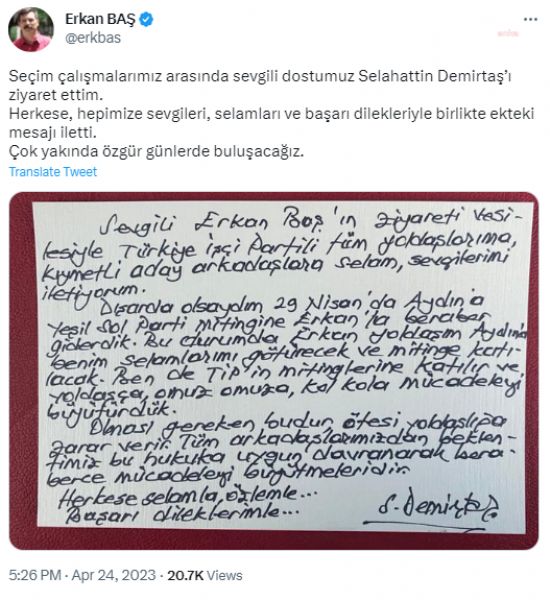 Erkan BAŞ
@erkbas
anka
Seçim çalışmalarımız arasında sevgili dostumuz Selahattin Demirtaş'ı
ziyaret ettim.
Herkese, hepimize sevgileri, selamları ve başarı dilekleriyle birlikte ekteki
mesajı iletti.
Çok yakında özgür günlerde buluşacağız.
Translate Tweet
Sevgili Erkan Baş'ın ziyareti vesi-
lesiyle Türkiye işçi Partili tüm yoldaşlarıma,
kıymetli aday arkadaşlara selam, sevgilerimi
iletiyorum.
Dışarda olsaydım 29 Nisan'da Aydın'a
Yeşil Sol Parti mitingine Erkan'la beraber
giderdik. Bu durumda Erkan yoldaşım Aydın'a
benim selamlarımı götürecek ve mitinge katı-
lacak. Ben de TİP'in mitinglerine katılır ve
yoldaşça, omuz omuza, kol kola mücadeleyi
büyütürdük.
Olması gereken budur, ötesi yoldaşlığa
zarar verir. Tüm arkadaşlarımızdan beklen-
timiz bu hukuka uygun davranarak bera-
berce mücadeleyi büyütmeleridir.
Herkese selamla, özlemle...
Başarı dileklerimle...
S. Demirtaş
5:26 PM · Apr 24, 2023 · 20.7K Views